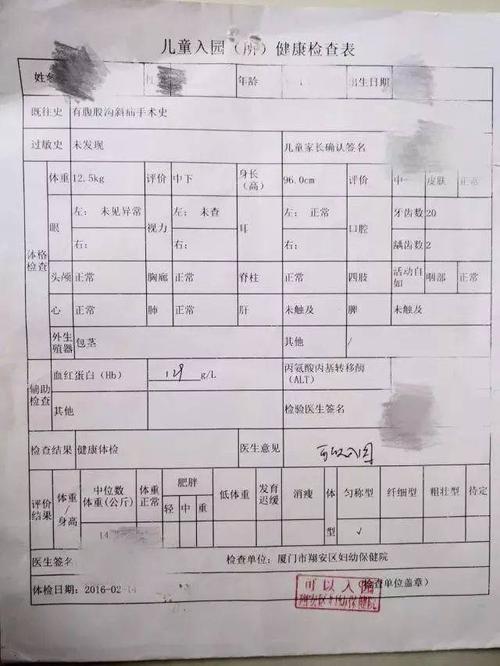 儿童入园（所）健康检查表
姓名 年龄 出生日期
既往史 有腹股沟斜疝手术史
过敏史 未发现 儿童家长确认签名
体格检查
体重 12.5kg 评价 中下 身长（高） 96.0cm 评价 中一 皮肤 正常
眼 左：未见异常 视力 左：未查 耳 左：正常 口腔 牙齿数 20
右： 右： 右： 龋齿数 2
头颅 正常 胸廓 正常 脊柱 正常 四肢 活动自如 咽部 正常
心 正常 肺 正常 肝 未触及 脾 未触及
外生殖器 包茎 其他 /
辅助检查
血红蛋白（Hb） 129 g/L 丙氨酸丙基转移酶（ALT）
其他 检验医生签名
检查结果 健康体检 医生意见 可以入园
评价结果 体重/身高 中位数体重(公斤) 体重正常 肥胖 低体重 发育迟缓 消瘦 体型 匀称型 纤细型 粗壮型 待定
轻 中 重
14 √
医生签名 检查单位：厦门市翔安区妇幼保健院
体检日期：2016-02- （检查单位盖章）
可以入园
翔安区妇幼保健院